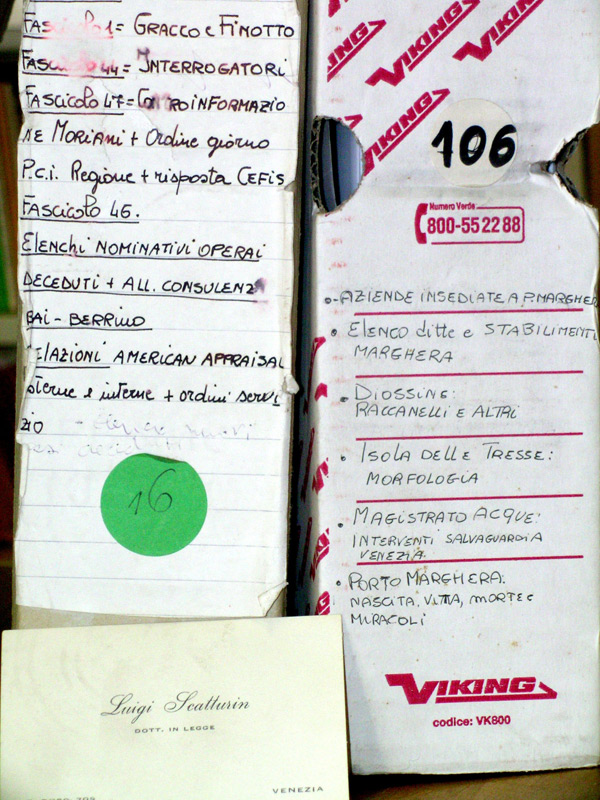 FASCICOLO 1 = GRACCO e FINOTTO
FASCICOLO 44 = INTERROGATORI
FASCICOLO 47 = CONTROINFORMAZIO
NE MORIANI + Ordine giorno
P.c.i. Regione + risposta CEFIS
FASCICOLO 46.
ELENCHI NOMINATIVI OPERAI
DECEDUTI + ALL. CONSULENZA
BAI - BERRINO
RELAZIONI AMERICAN APPRAISAL
esterne e interne + ordini servi
zio
16
Luigi Scatturin
DOTT. IN LEGGE
VENEZIA
VIKING
VIKING
VIKING
VIKING
106
Numero Verde
800-55 22 88
- AZIENDE INSEDIATE A P. MARGHER
• ELENCO ditte e STABILIMENTI
MARGHERA
• DIOSSINE:
RACCANELLI E ALTRI
• ISOLA DELLE TRESSE:
MORFOLOGIA
• MAGISTRATO ACQUE:
INTERVENTI SALVAGUARDIA
VENEZIA
• PORTO MARGHERA:
NASCITA, VITA, MORTE E
MIRACOLI
VIKING
codice: VK800